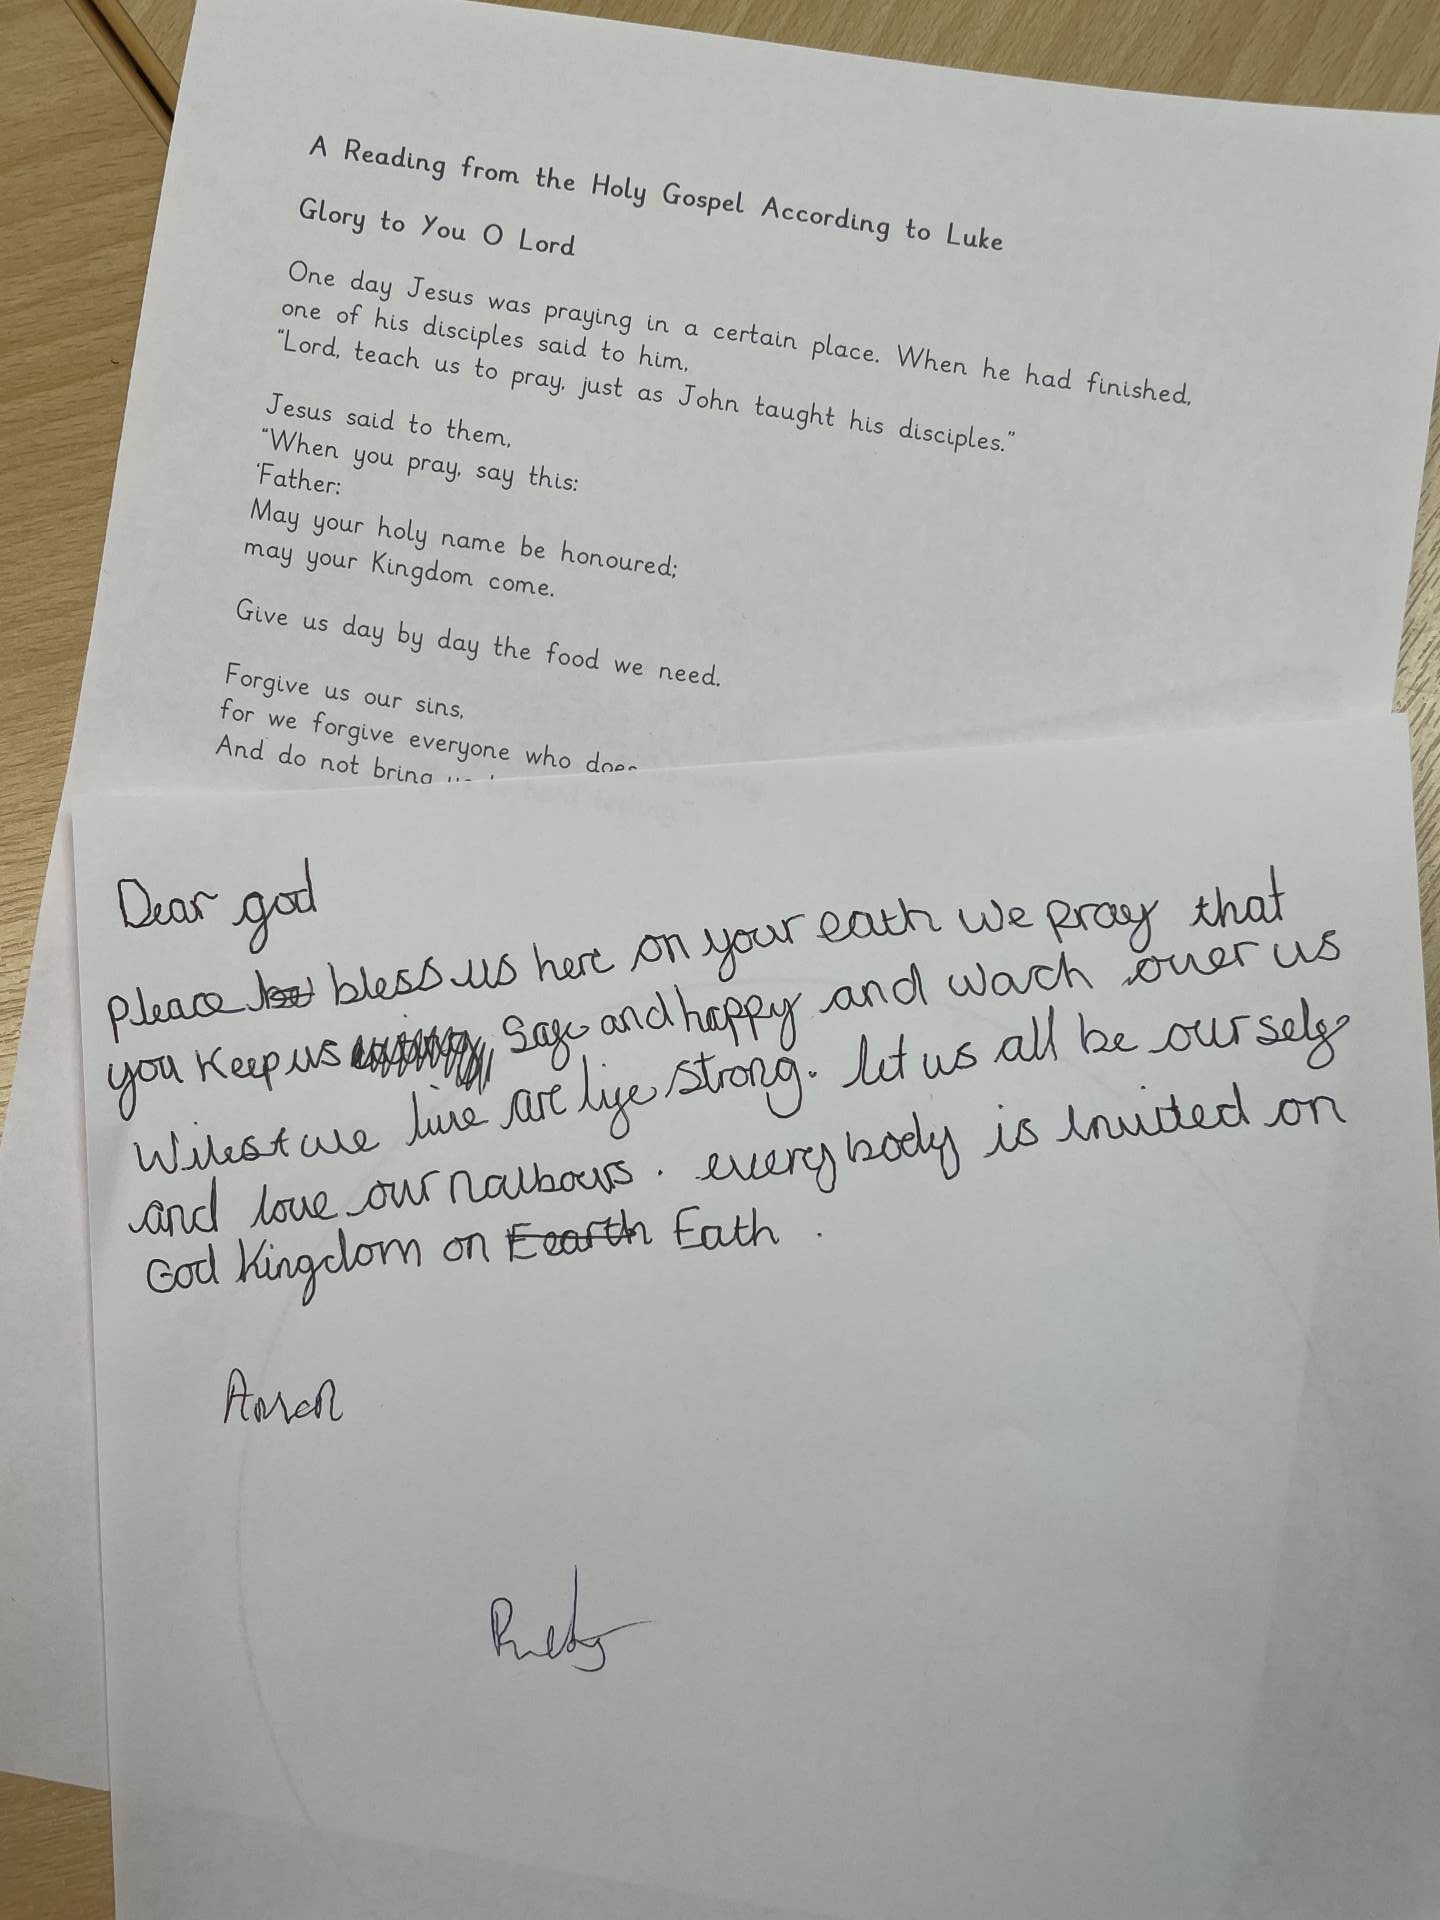 A Reading from the Holy Gospel According to Luke
Glory to You O Lord
One day Jesus was praying in a certain place. When he had finished,
one of his disciples said to him,
"Lord, teach us to pray, just as John taught his disciples."
Jesus said to them,
"When you pray, say this:
'Father:
May your holy name be honoured;
may your Kingdom come.
Give us day by day the food we need.
Forgive us our sins,
for we forgive everyone who does
And do not bring us to hard testing
Dear god
Pleace bless us here on your eath we pray that
you keep us safe and happy and wach over us
Wilest we live are life strong. let us all be our selfs
and love our naibours. everybody is invited on
God Kingdom on Eearth Eath.
Amen